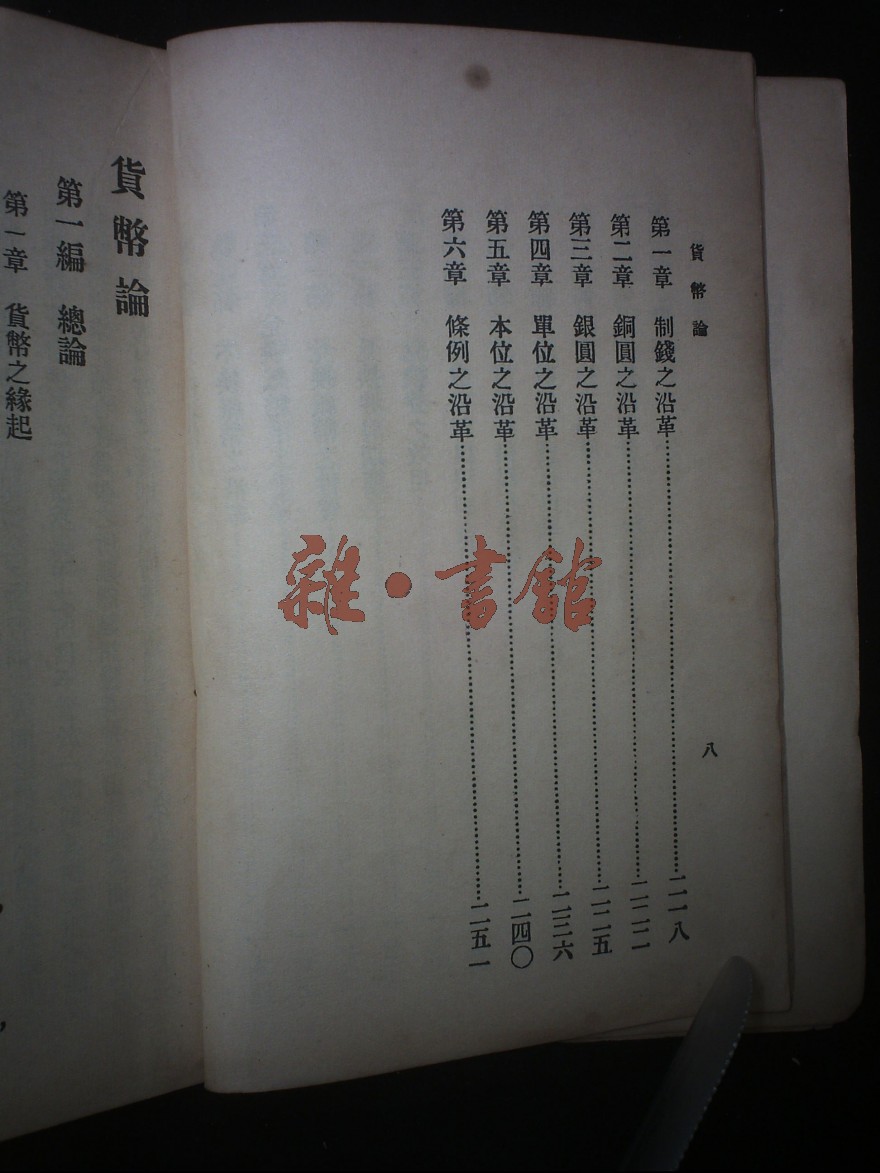 貨幣論
八
第一章 制錢之沿革 二一八
第二章 銅圓之沿革 二二二
第三章 銀圓之沿革 二二五
第四章 單位之沿革 二三六
第五章 本位之沿革 二四〇
第六章 條例之沿革 二五一
貨幣論
第一編 總論
第一章 貨幣之緣起
雜·書館